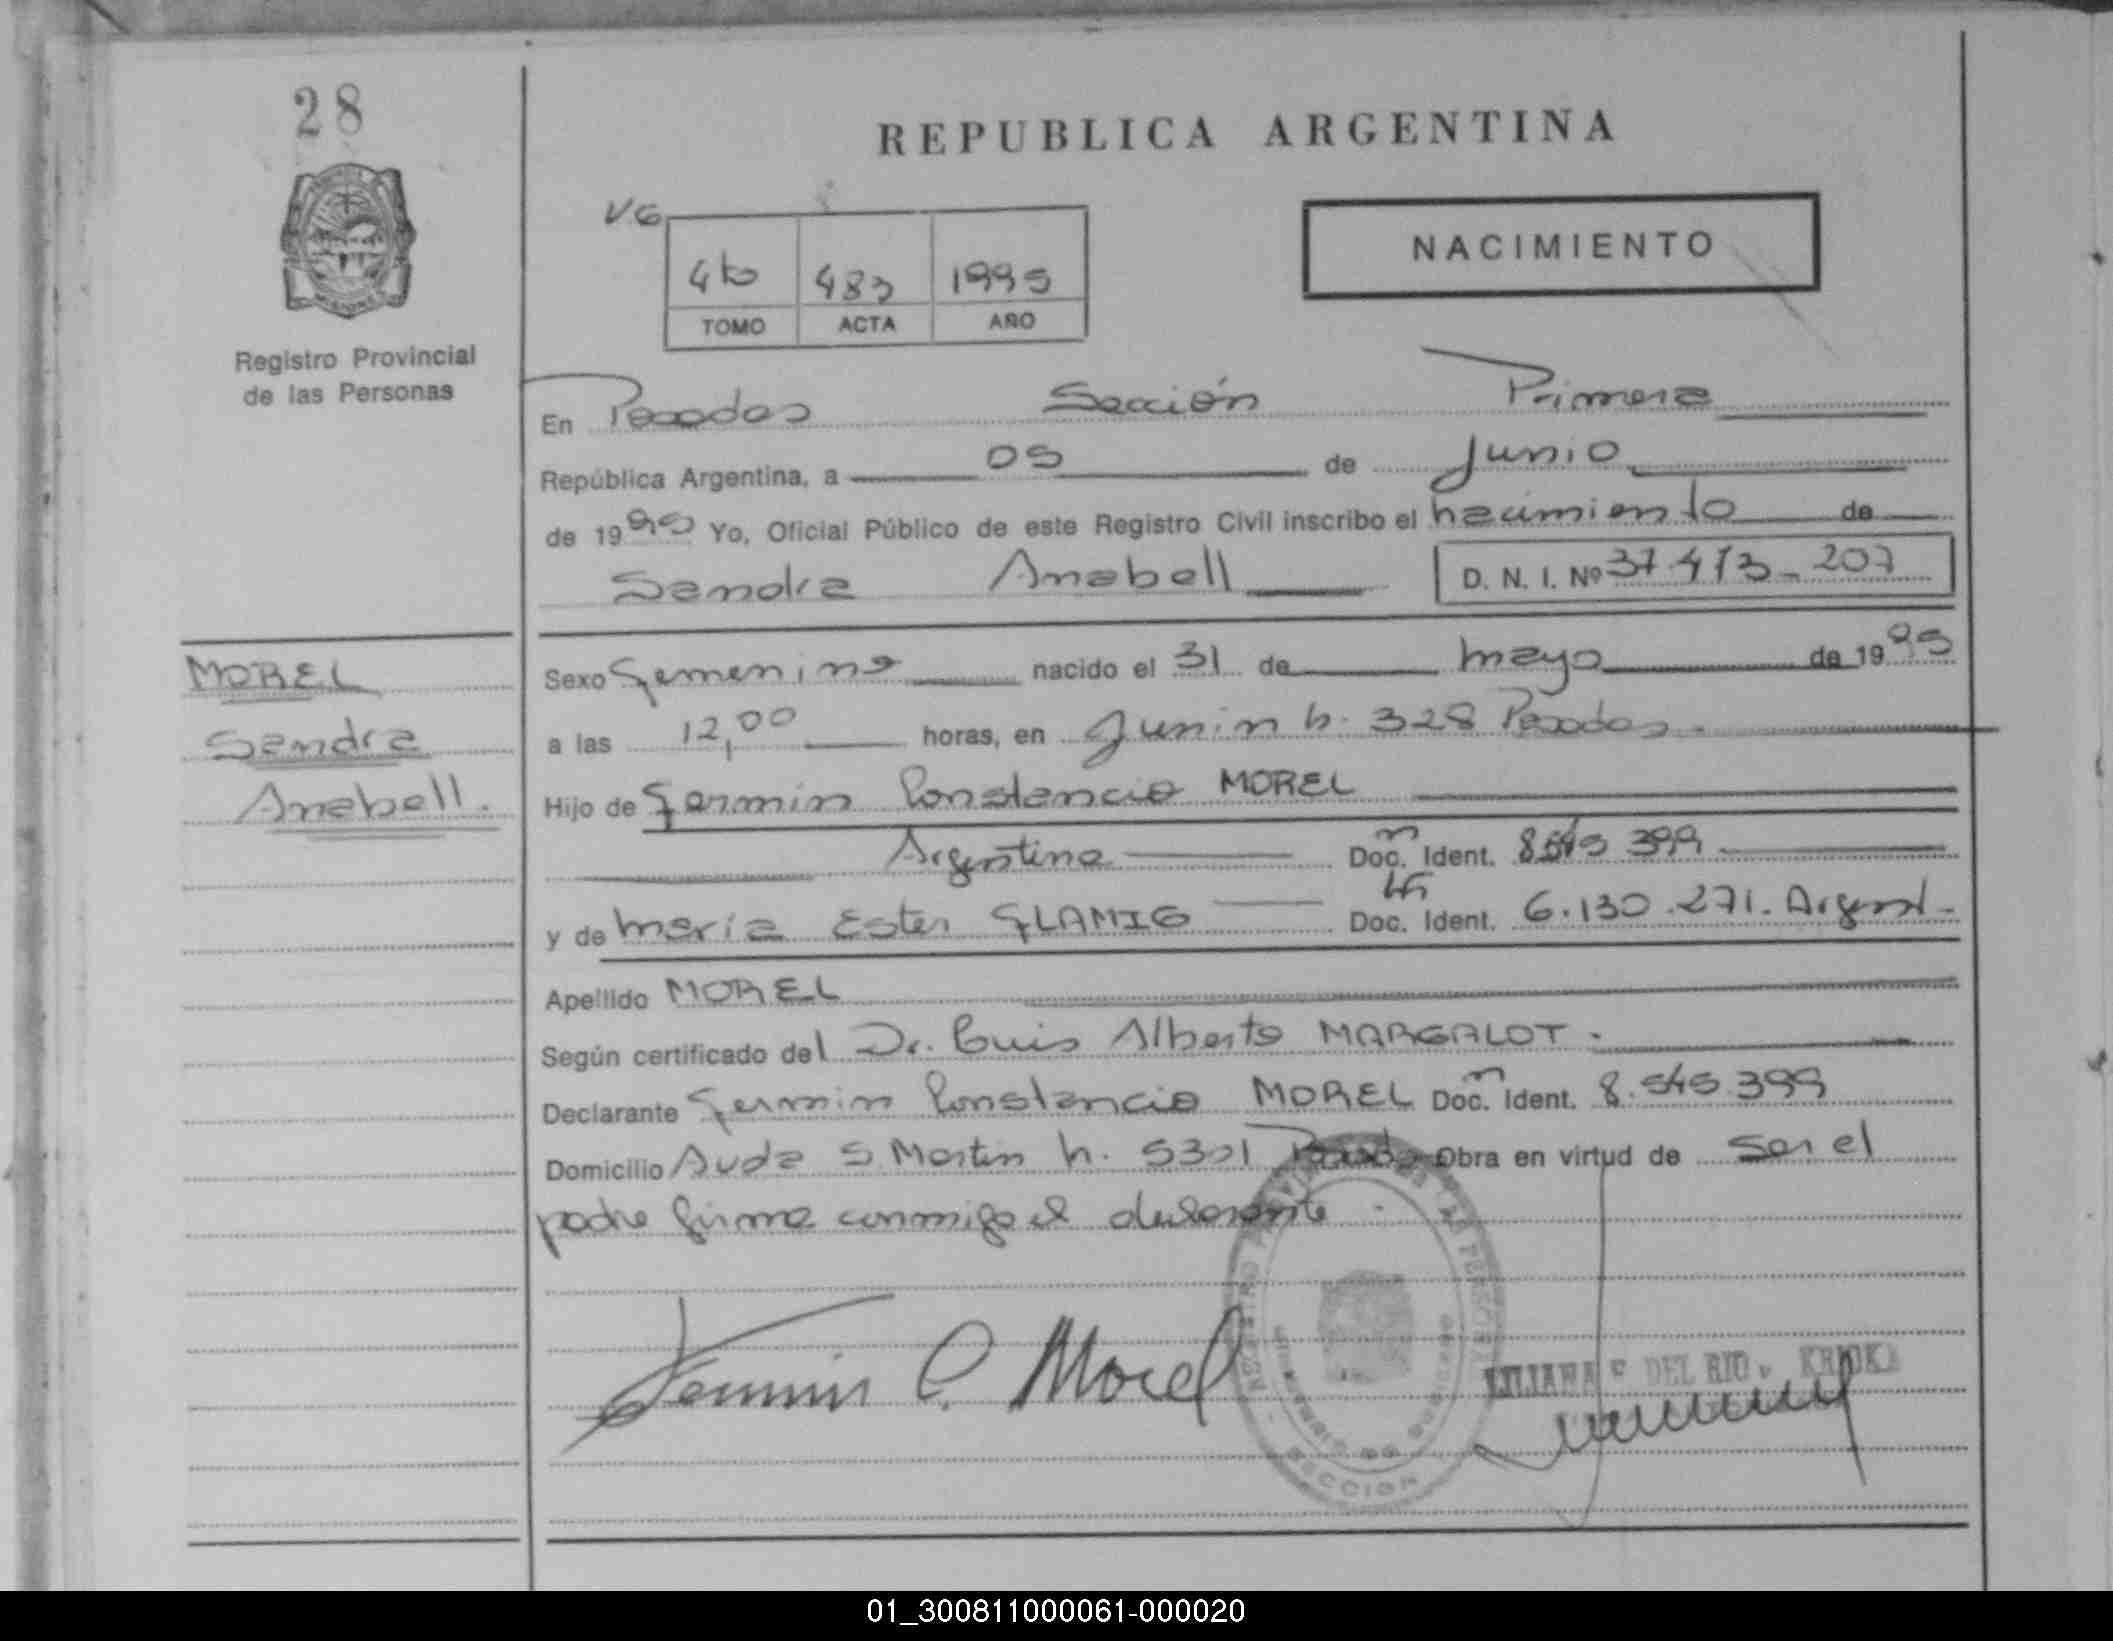 28
REPUBLICA ARGENTINA
VG
4to 483 1995
TOMO ACTA AÑO
NACIMIENTO
Registro Provincial
de las Personas
En Posadas Sección Primera
República Argentina, a 05 de Junio
de 1995 Yo, Oficial Público de este Registro Civil inscribo el nacimiento de
Sandra Anabell D. N. I. Nº 37.413-207
MOREL
Sandra
Anabell.
Sexo Femenino nacido el 31 de mayo de 1995
a las 12,00 horas, en Junin n. 328 Posadas.
Hijo de Fermin Constancio MOREL
Argentina Doc. Ident. 8.545 399
y de Maria Ester FLAMIG Doc. Ident. 6.130.271. Argent.
Apellido MOREL
Según certificado del Dr. Luis Alberto MARGALOT.
Declarante Fermin Constancio MOREL Doc. Ident. 8.545.399
Domicilio Avda S. Martin n. 5301 Posadas Obra en virtud de ser el
padre firma conmigo el declarante.
Fermin C. Morel
LILIANA DEL RIO
SECCION
01_300811000061-000020